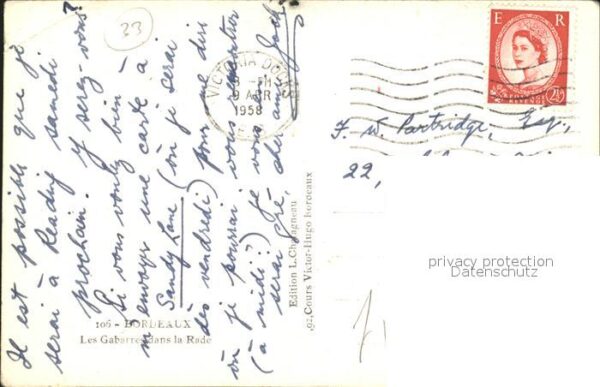 23
Il est possible que je
serai à Reading samedi
prochain. Y serez-vous?
Si vous voulez bien
m'envoyer une carte à
Sandy Lane (où je serai
dès vendredi) pour me dire
où je pourrai vous
(à midi?) Je vous
serai gré, cher ami,
VICTORIA DOCKS
9 APR
1958
E R
POSTAGE
REVENUE
2½D
F. W. Partridge, Esq.,
22,
106 - BORDEAUX
Les Gabarres dans la Rade
Edition L. Chatagneau
92, Cours Victor-Hugo Bordeaux
privacy protection
Datenschutz